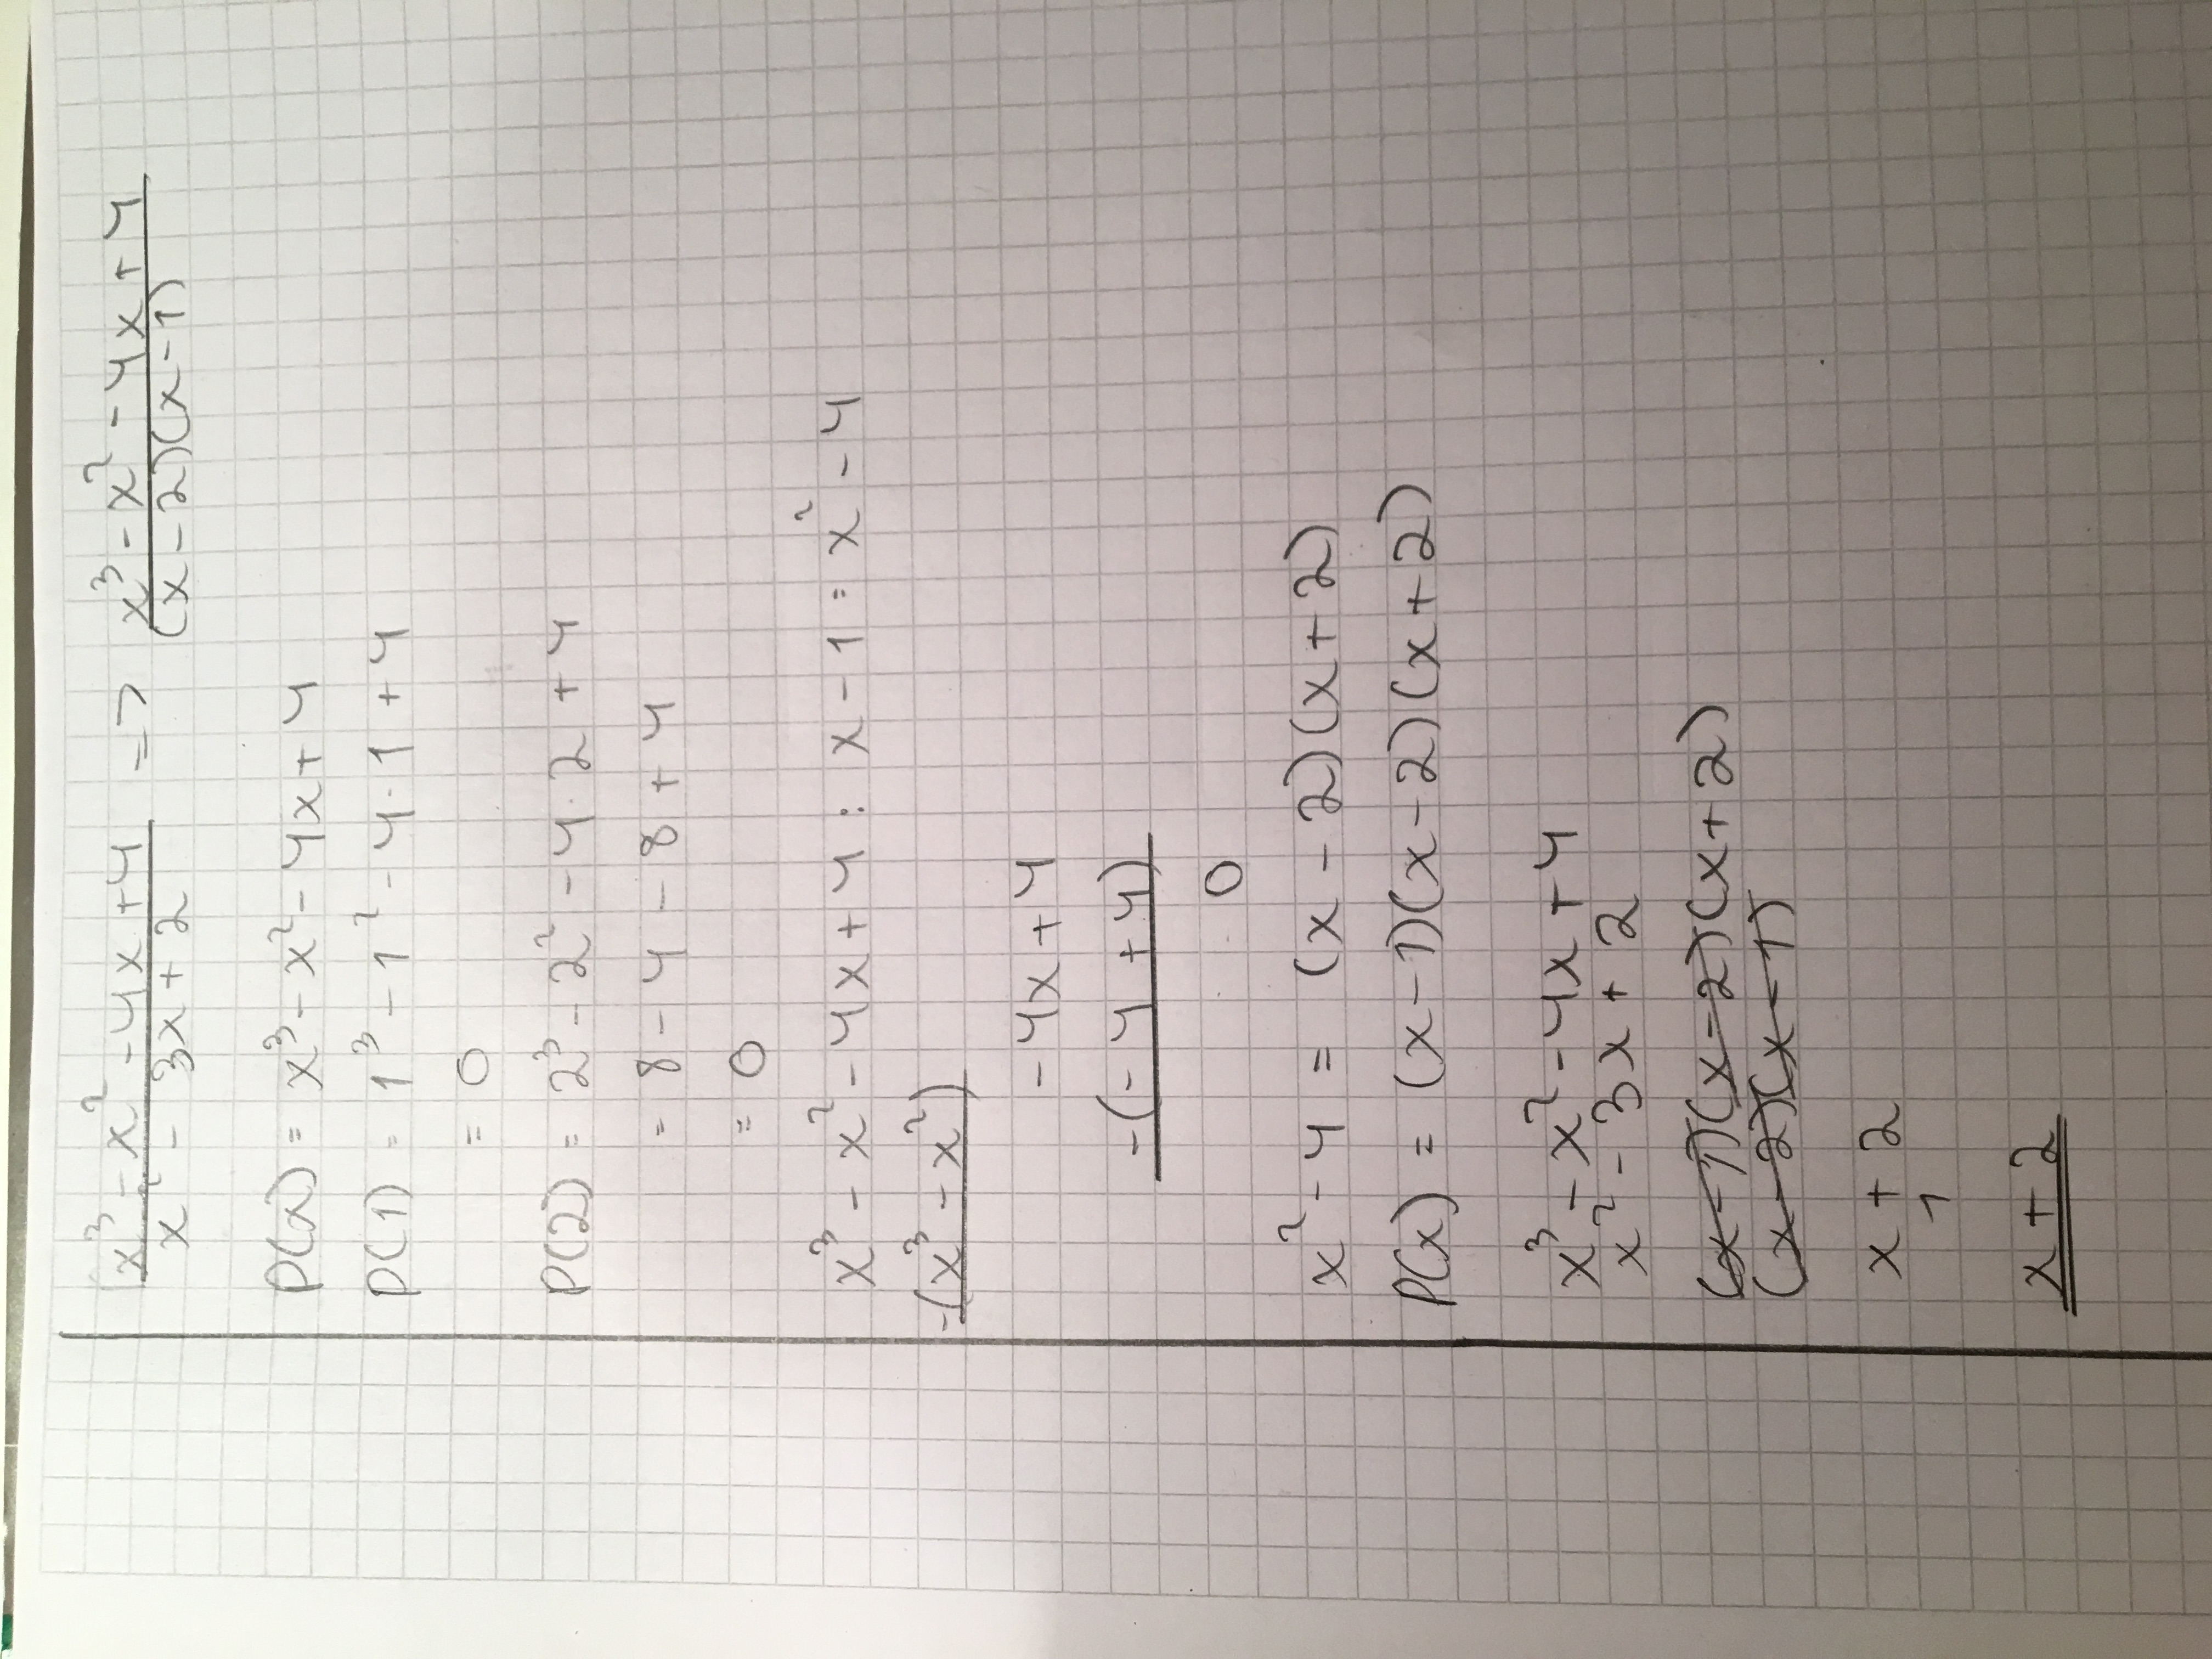 x³ - x² - 4x + 4 => x³ - x² - 4x + 4
x² - 3x + 2 (x - 2)(x - 1)
P(x) = x³ - x² - 4x + 4
P(1) = 1³ - 1² - 4 · 1 + 4
= 0
P(2) = 2³ - 2² - 4 · 2 + 4
= 8 - 4 - 8 + 4
= 0
x³ - x² - 4x + 4 : x - 1 = x² - 4
-(x³ - x²)
- 4x + 4
-(- 4 + 4)
0
x² - 4 = (x - 2)(x + 2)
P(x) = (x - 1)(x - 2)(x + 2)
x³ - x² - 4x + 4
x² - 3x + 2
(x - 1)(x - 2)(x + 2)
(x - 2)(x - 1)
x + 2
1
x + 2